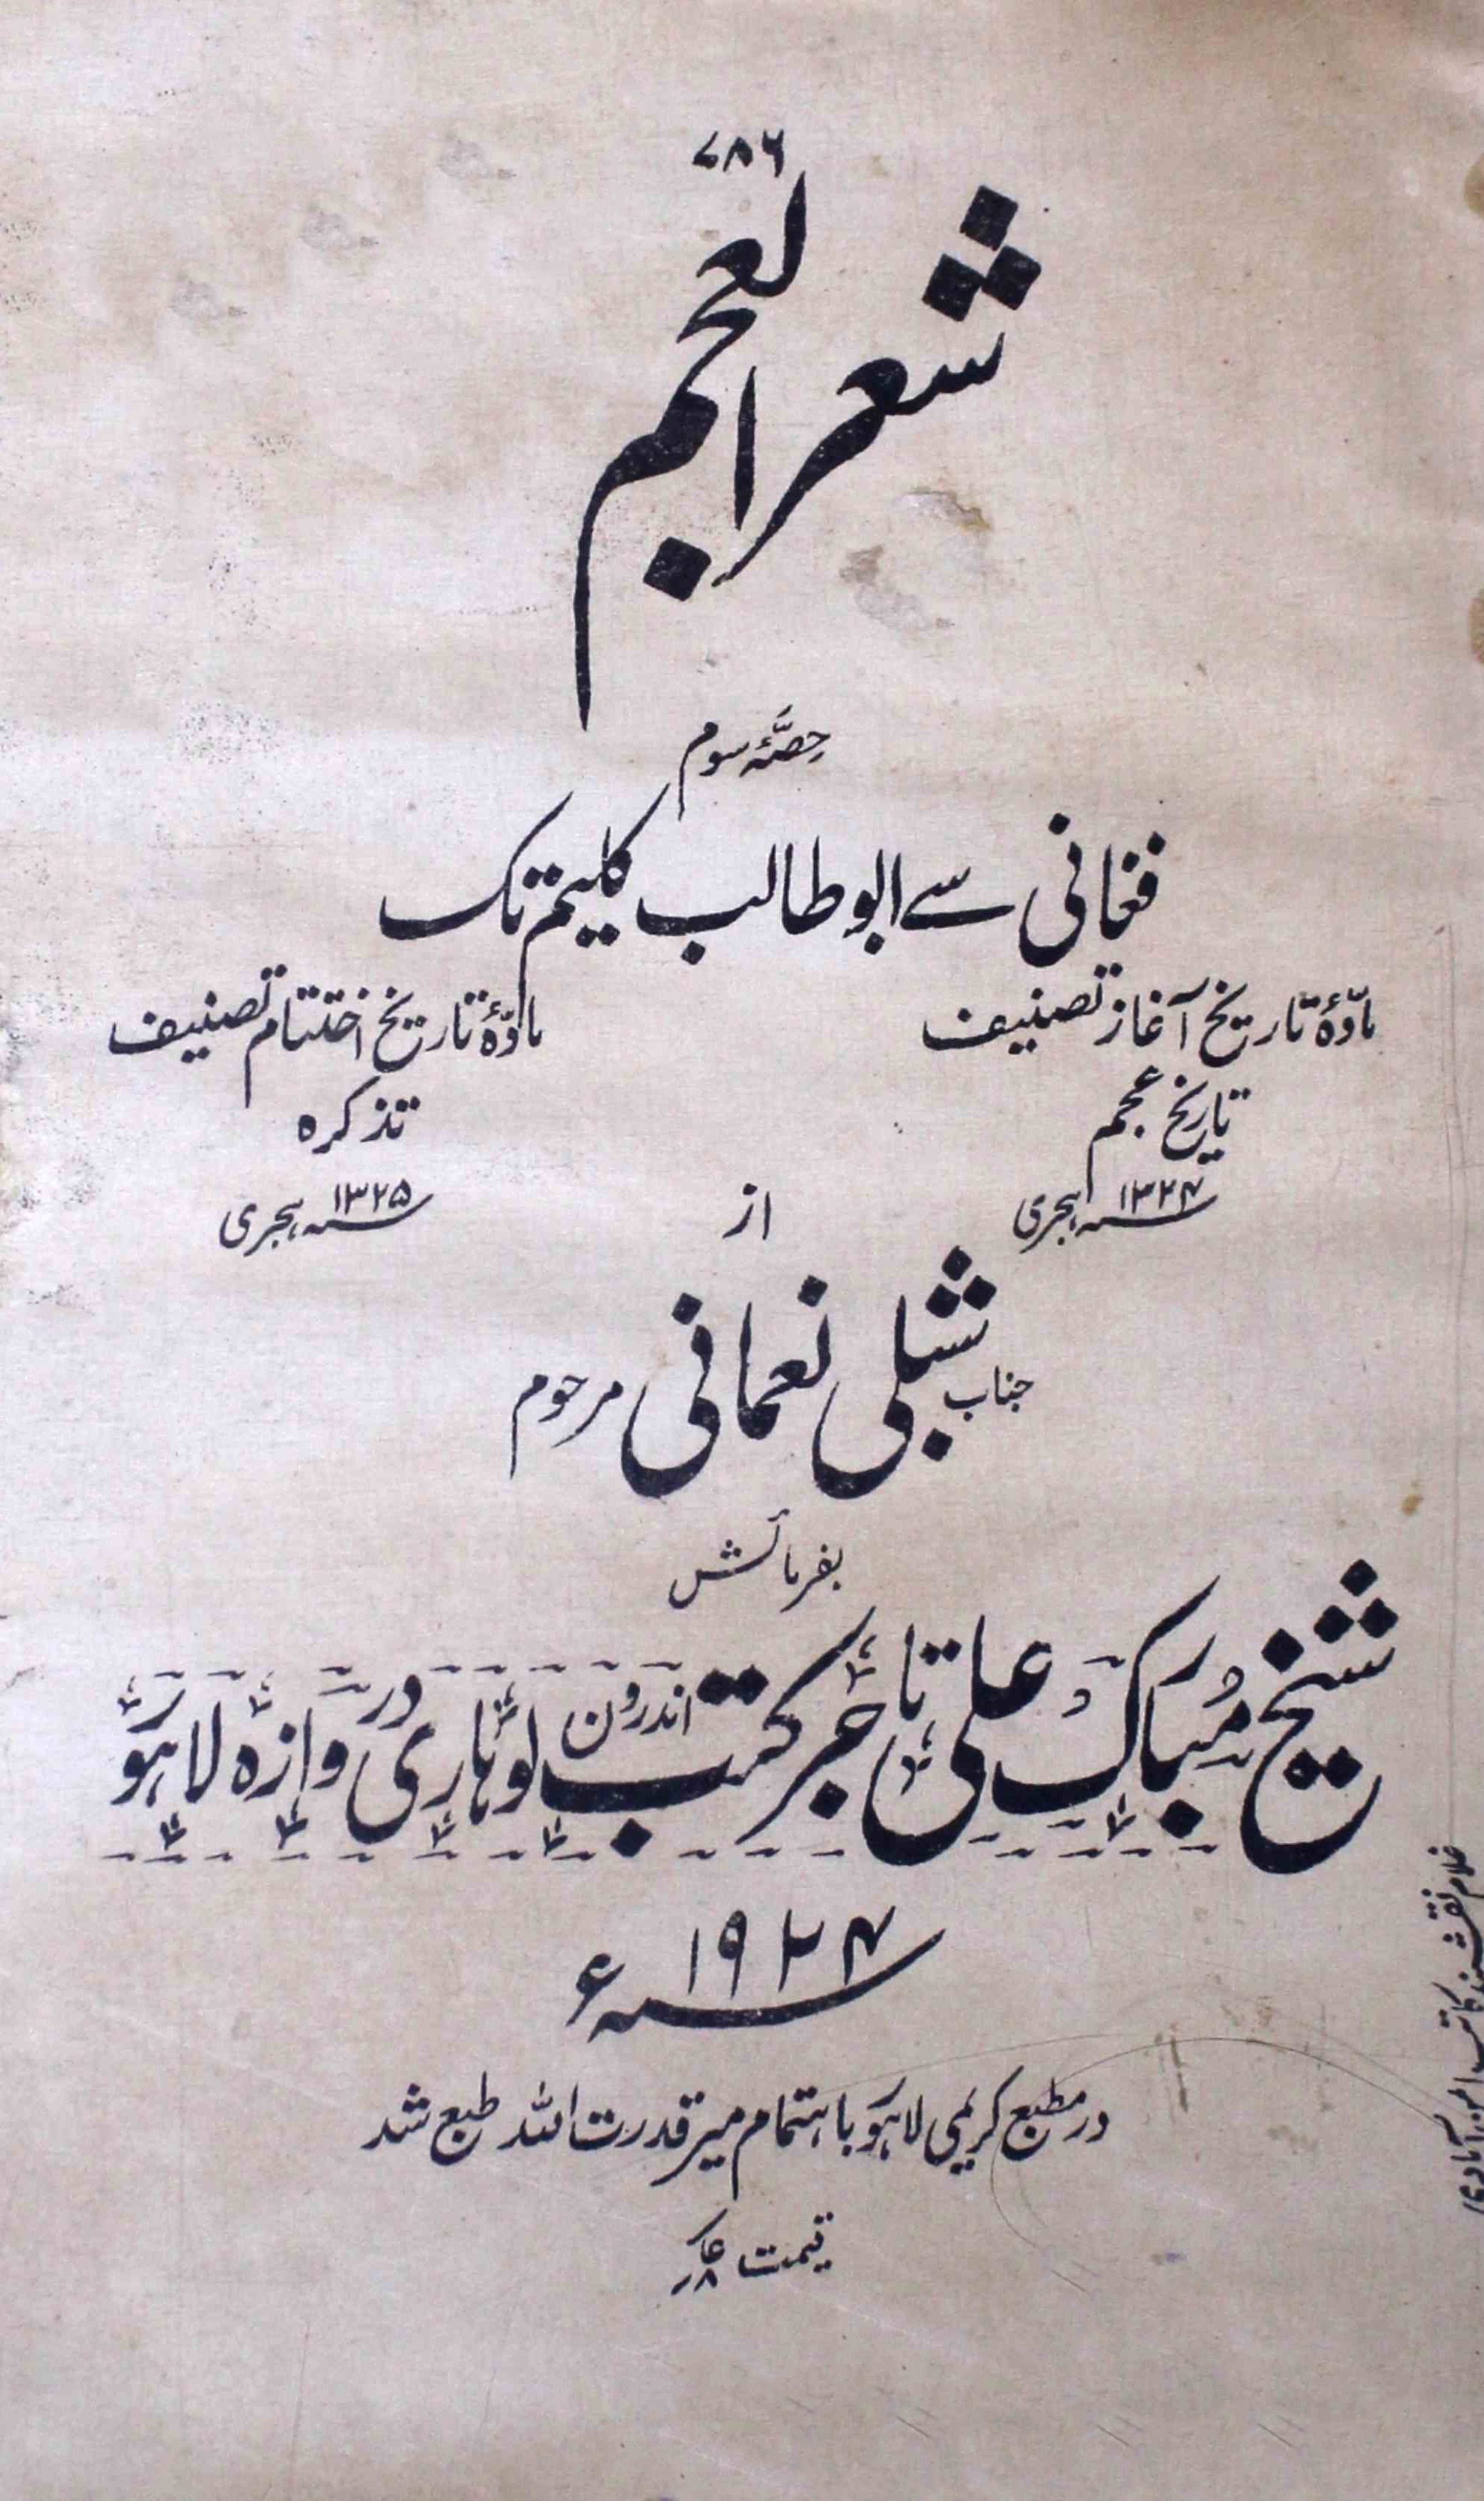 ۷۸۶
شعر العجم
حصّۂ سوم
فغانی سے ابو طالب کلیم تک
مادّۂ تاریخ آغاز تصنیف
تاریخ عجم
۱۳۲۴ سنہ ہجری
مادّۂ تاریخ اختتام تصنیف
تذکرہ
۱۳۲۵ سنہ ہجری
از
جناب شبلی نعمانی مرحوم
بفرمائش
شیخ مُبارک علی تاجر کتب اندرون لوہاری دروازہ لاہور
سنہ ۱۹۲۴ء
در مطبع کریمی لاہور باہتمام میر قدرت اللہ طبع شد
قیمت
غلام نقشبند کاتب